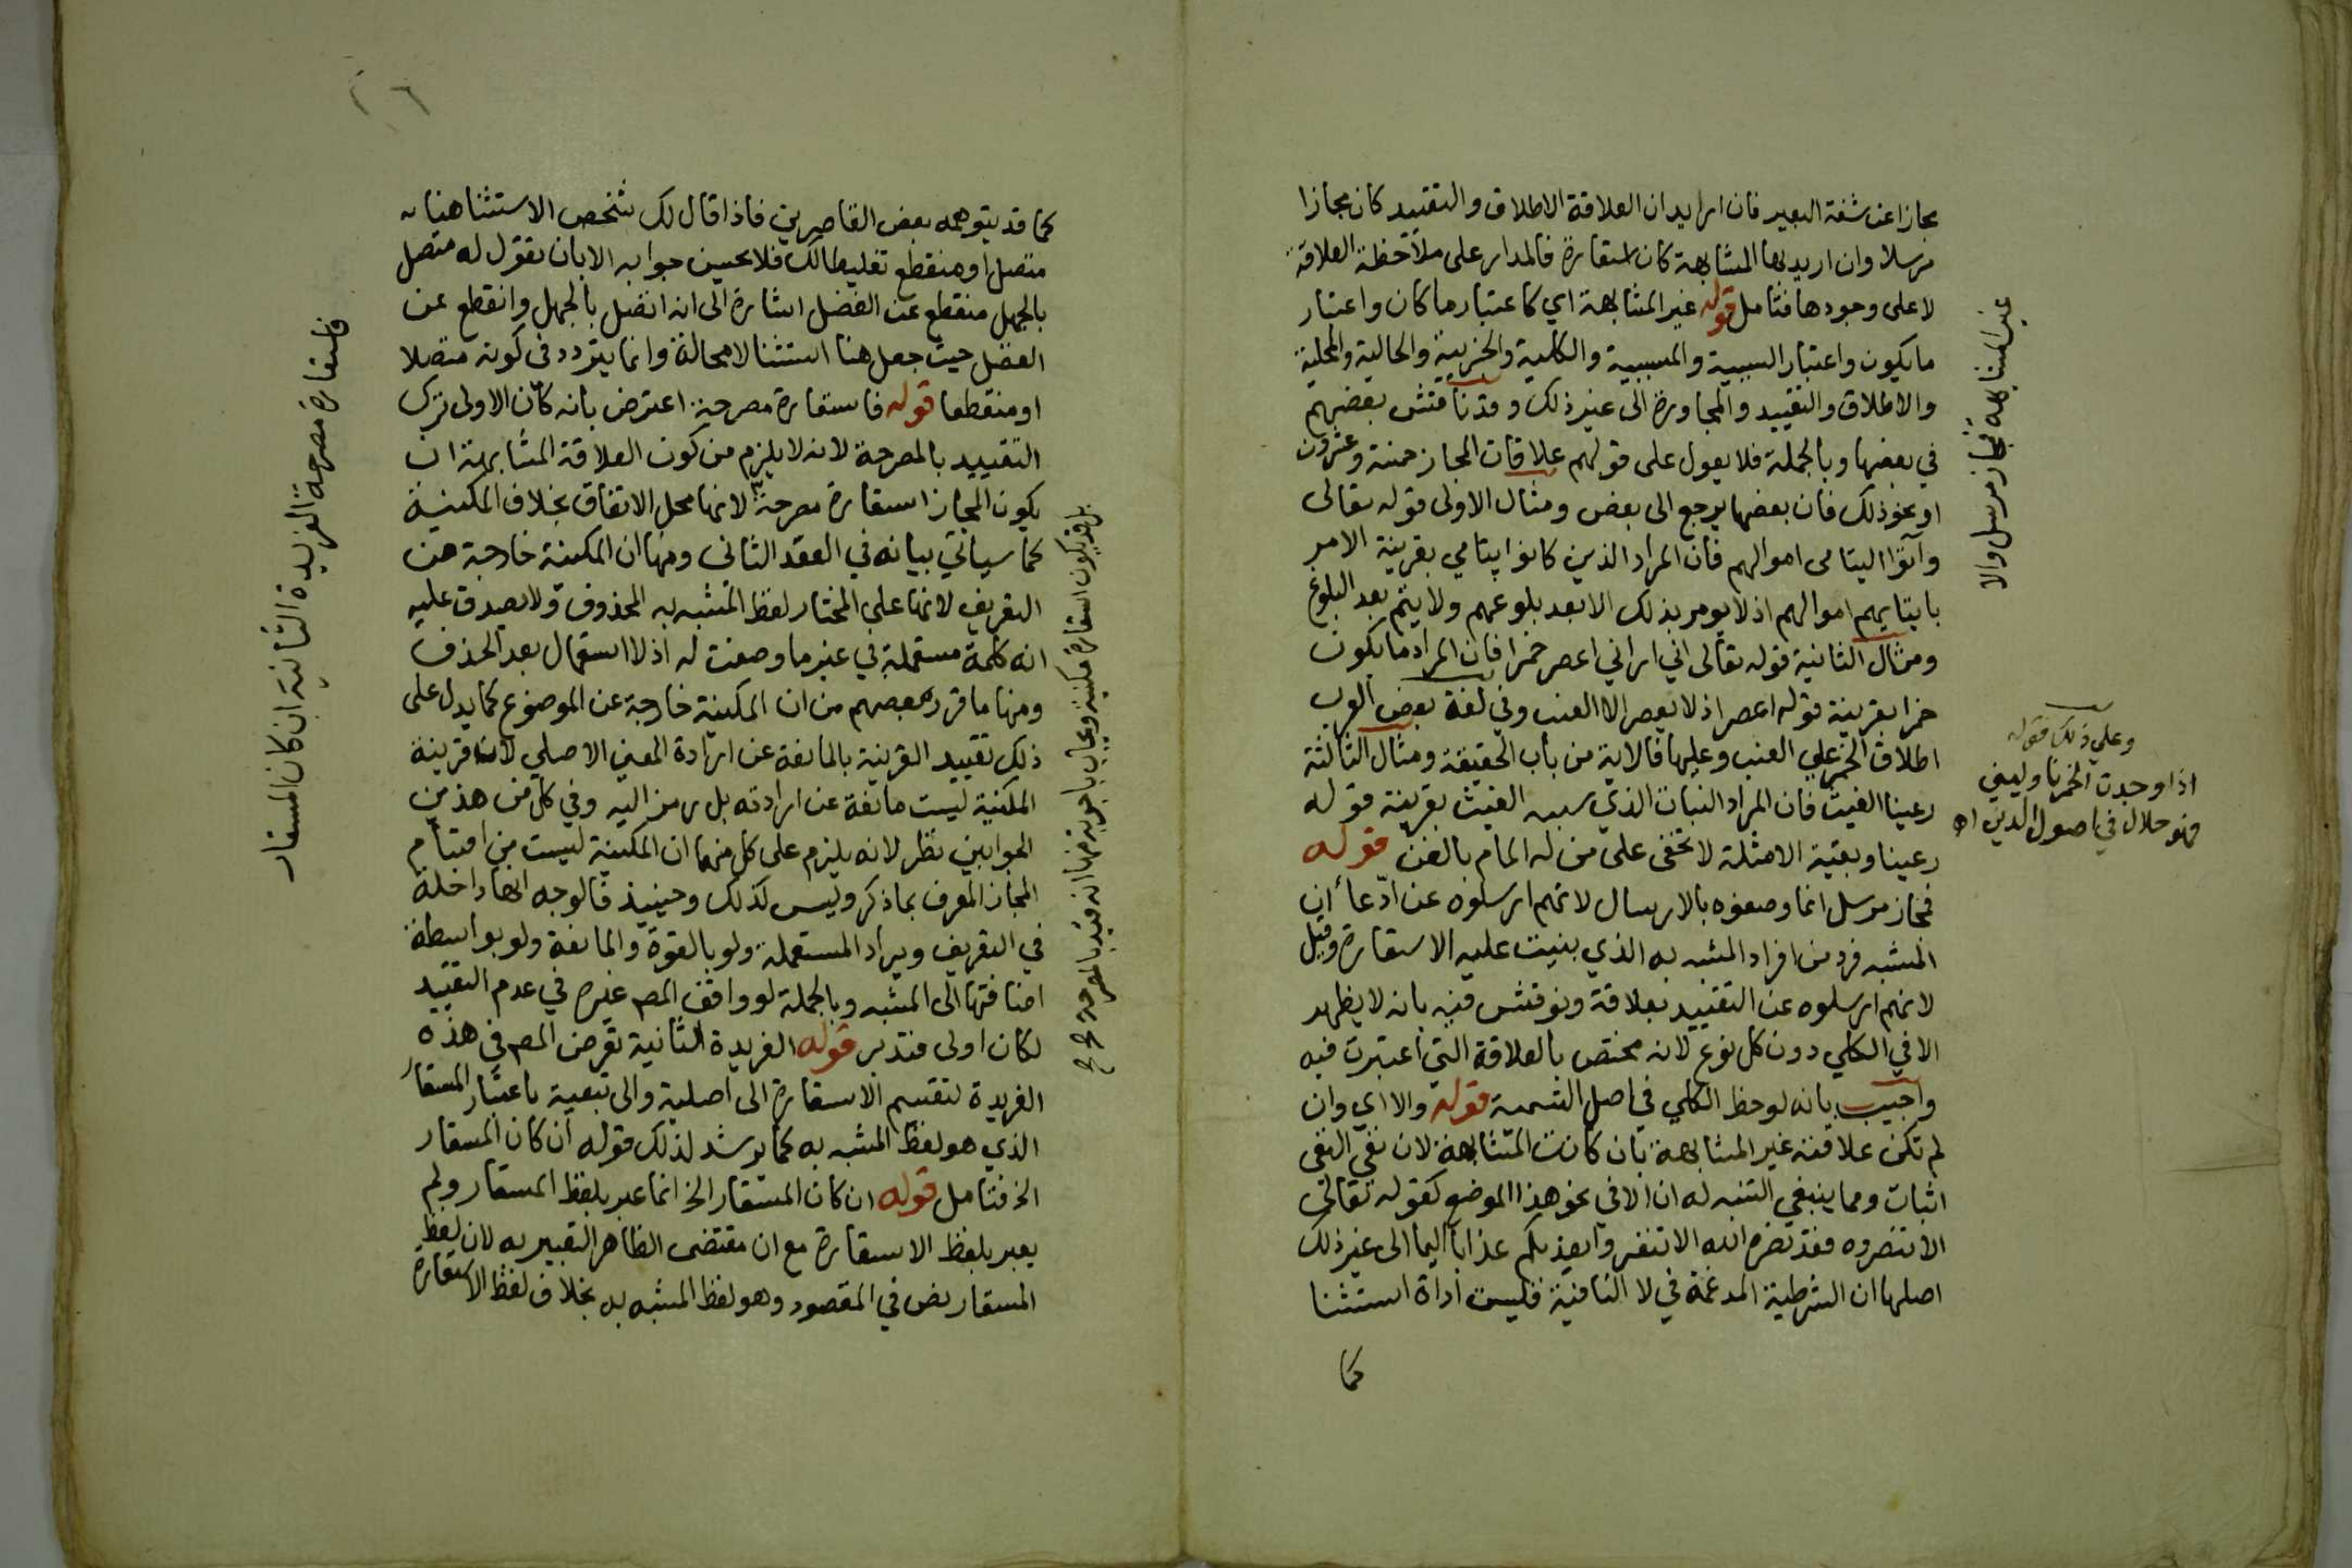 مجازا عن شفة البعير فان اريد ان العلاقة الاطلاق والتقييد كان مجازا
مرسلا وان اريد بها المشابهة كان استعارة فالمدار على ملاحظة العلاقة
لا على وجودها فتامل قوله غير المشابهة اي كاعتبار ما كان واعتبار
ما يكون واعتبار السببية والمسببية والكلية والجزئية والحالية والمحلية
والاطلاق والتقييد والمجاورة الى غير ذلك وقد ناقش بعضهم
في بعضها وبالجملة فلا يعول على قولهم علاقات المجاز خمسة وعشرون
او نحو ذلك فان بعضها يرجع الى بعض ومثال الاولى قوله تعالى
وآتوا اليتامى اموالهم فان المراد الذين كانوا يتامي بقرينة الامر
بايتايهم اموالهم اذ لا يومر بذلك الا بعد بلوغهم ولا يتم بعد البلوغ
ومثال الثانية قوله تعالى اني اراني اعصر خمرا فان المراد ما يكون
خمرا بقرينة قوله اعصر اذ لا يعصر الا العنب وفي لغة بعض العرب
اطلاق الخمر علي العنب وعليها فالاية من باب الحقيقة ومثال الثالثة
رعينا الغيث فان المراد النبات الذي سببه الغيث بقرينة قوله
رعينا وبقية الامثلة لا تخفى على من له المام بالفن قوله
فمجاز مرسل انما وصفوه بالارسال لانهم ارسلوه عن ادّعاء ان
المشبه فرد من افراد المشبه به الذي بنيت عليه الاستعارة وقيل
لانهم ارسلوه عن التقييد بعلاقة ونوقش فيه بانه لا يظهر
الا في الكلي دون كل نوع لانه مختص بالعلاقة التي اعتبرت فيه
واجيب بانه لوحظ الكلي في اصل التسمية قوله والا اي وان
لم تكن علاقته غير المشابهة بان كانت المشابهة لان نفي النفي
اثبات ومما ينبغي التنبه له ان الا في نحو هذا الموضع كقوله تعالى
الا تنصروه فقد نصره الله الا تنفروا يعذبكم عذابا اليما الى غير ذلك
اصلها ان الشرطية المدغمة في لا النافية فليست اداة استثنا
كما
غير المشابهة فمجاز مرسل والا
وعلي ذلك قوله
اذا وجدت الخمرنا وليني
فهو حلال في اصول الدين اه
٢٦
كما قد يتوهمه بعض القاصرين فاذا قال لك شخص الاستثنا هنا
متصل او منقطع تغليطا لك فلا يحسن جوابه الا بان تقول له متصل
بالجهل منقطع عن الفضل اشارة الى انه اتصل بالجهل وانقطع عن
الفضل حيث جعل هنا استثنا لا محالة وانما يتردد في كونه متصلا
او منقطعا قوله فاستعارة مصرحة اعترض بانه كان الاولى ترك
التقييد بالمصرحة لانه لا يلزم من كون العلاقة المشابهة ان
يكون المجاز استعارة مصرحة لانها محل الاتفاق بخلاف المكنية
كما سياتي بيانه في العقد الثاني ومنها ان المكنية خارجة عن
التعريف لانها علي المختار لفظ المشبه به المحذوف ولا يصدق عليه
انه كلمة مستعملة في غير ما وضعت له اذ لا استعمال بعد الحذف
ومنها ما قرره بعضهم من ان المكنية خارجة عن الموضوع كما يدل على
ذلك تقييد القرينة بالمانعة عن ارادة المعني الاصلي لان قرينة
المكنية ليست مانعة عن ارادته بل رمز اليه وفي كل من هذين
الجوابين نظر لانه يلزم على كل منهما ان المكنية ليست من اقسام
المجاز المعرف بما ذكر وليس كذلك وحينيذ فالوجه انها داخلة
في التعريف ويراد المستعملة ولو بالقوة والمانعة ولو بواسطة
اضافتها الى المشبه وبالجملة لو وافق المص غيره في عدم التقييد
لكان اولى فتدبر قوله الفريدة الثانية تعرض المص في هذه
الفريدة لتقسيم الاستعارة الى اصلية والى تبعية باعتبار المستعار
الذي هو لفظ المشبه به كما يرشد لذلك قوله ان كان المستعار
الخ فتامل قوله ان كان المستعار الخ انما عبر بلفظ المستعار ولم
يعبر بلفظ الاستعارة مع ان مقتضى الظاهر التعبير به لان لفظ
المستعار نص في المقصود وهو لفظ المشبه به بخلاف لفظ الاستعارة
بل قد يكون استعارة مكنية ويجاب باجوبة منها انه قيد بالمصرحة
فاستعارة مصرحة الفريدة الثانية ان كان المستعار